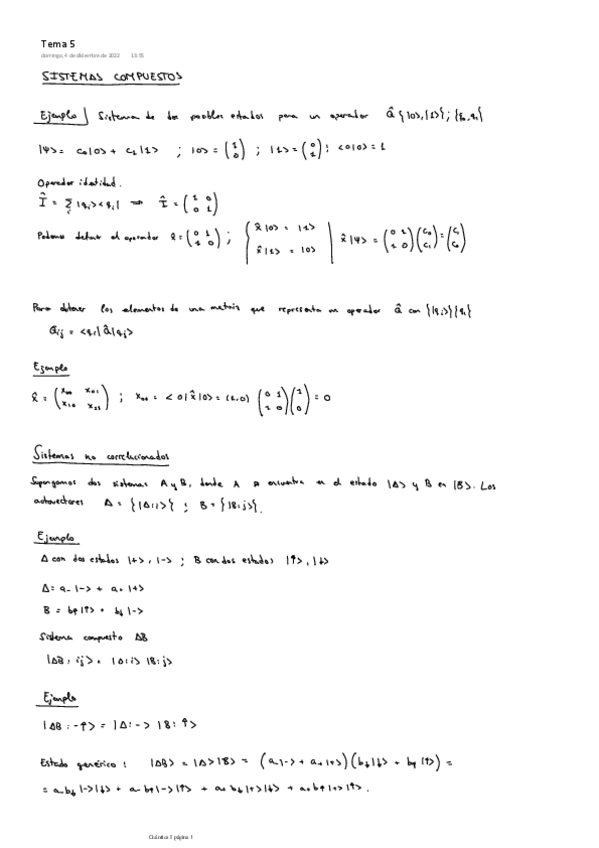 Tema 5
domingo, 4 de diciembre de 2022 13:55
SISTEMAS COMPUESTOS
Ejemplo | Sistema de dos posibles estados para un operador Q̂ {|0>,|1>}; {q₀,q₁}
|Ψ> = c₀|0> + c₁|1> ; |0> = (1 0) ; |1> = (0 1) ; <0|0> = 1
Operador identidad.
Î = Σ |qᵢ><qᵢ| ⟹ Î = (1 0 / 0 1)
Podemos definir el operador x̂ = (0 1 / 1 0) ; { x̂|0> = |1> / x̂|1> = |0> | x̂|Ψ> = (0 1 / 1 0)(c₀ / c₁) = (c₁ / c₀)
Para obtener los elementos de una matriz que representa un operador Q̂ con {|qᵢ>}{qᵢ}
Qᵢⱼ = <qᵢ|Q̂|qⱼ>
Ejemplo
x̂ = (x₀₀ x₀₁ / x₁₀ x₁₁) ; x₀₀ = <0|x̂|0> = (1,0) (0 1 / 1 0)(1 / 0) = 0
Sistemas no correlacionados
Supongamos dos sistemas A y B, donde A se encuentra en el estado |A> y B en |B>. Los
autovectores A = {|A:i>} ; B = {|B:j>}.
Ejemplo
A con dos estados |+>, |-> ; B con dos estados |↑>, |↓>
A = a₋|-> + a₊|+>
B = b↑|↑> + b↓|->
Sistema compuesto AB
|AB:ij> = |A:i>|B:j>
Ejemplo
|AB:-↑> = |A:->|B:↑>
Estado genérico: |AB> = |A>|B> = (a₋|-> + a₊|+>)(b↓|↓> + b↑|↑>) =
= a₋b↓|->|↓> + a₋b↑|->|↑> + a₊b↓|+>|↓> + a₊b↑|+>|↑>.
Cuántica I página 1